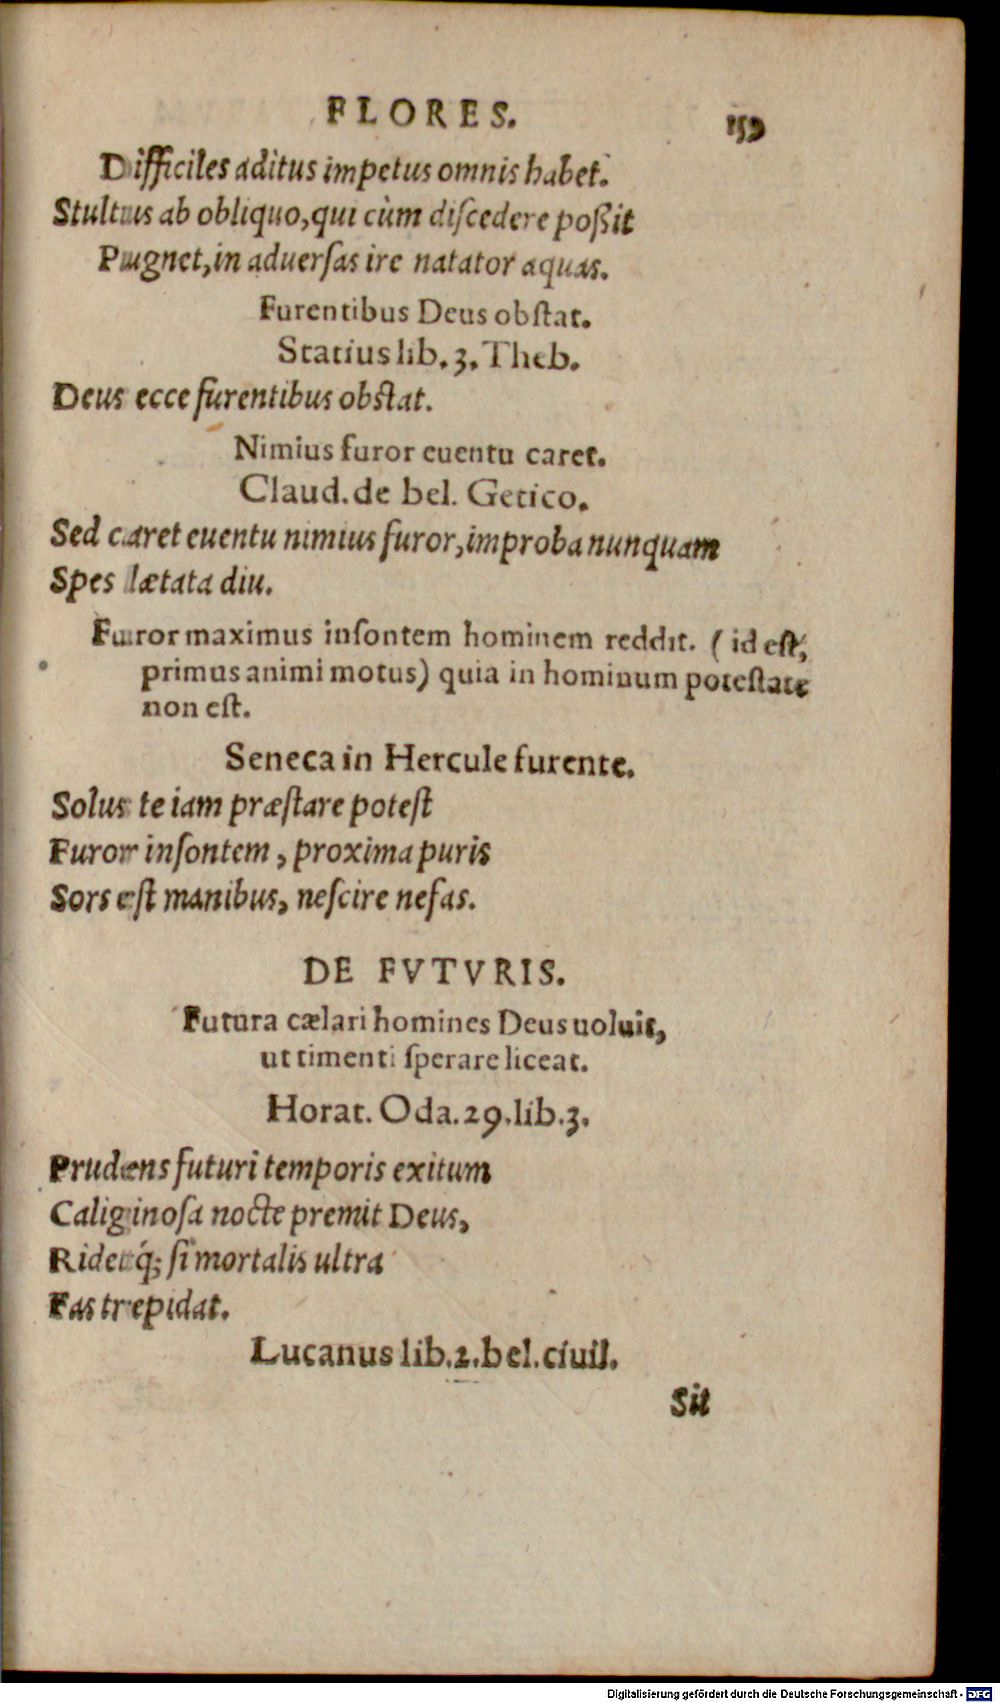 FLORES. 159
Difficiles aditus impetus omnis habet.
Stultus ab obliquo, qui cùm discedere poßit
Pugnet, in aduersas ire natator aquas.
Furentibus Deus obstat.
Statius lib. 3. Theb.
Deus ecce furentibus obstat.
Nimius furor euentu caret.
Claud. de bel. Getico.
Sed caret euentu nimius furor, improba nunquam
Spes lætata diu.
Furor maximus insontem hominem reddit. (id est,
primus animi motus) quia in hominum potestate
non est.
Seneca in Hercule furente.
Solus te iam præstare potest
Furor insontem, proxima puris
Sors est manibus, nescire nefas.
DE FVTVRIS.
Futura cælari homines Deus uoluit,
ut timenti sperare liceat.
Horat. Oda. 29. lib. 3.
Prudens futuri temporis exitum
Caliginosa nocte premit Deus,
Ridetq́; si mortalis ultra
Fas trepidat.
Lucanus lib. 2. bel. ciuil.
Sit
Digitalisierung gefördert durch die Deutsche Forschungsgemeinschaft - DFG